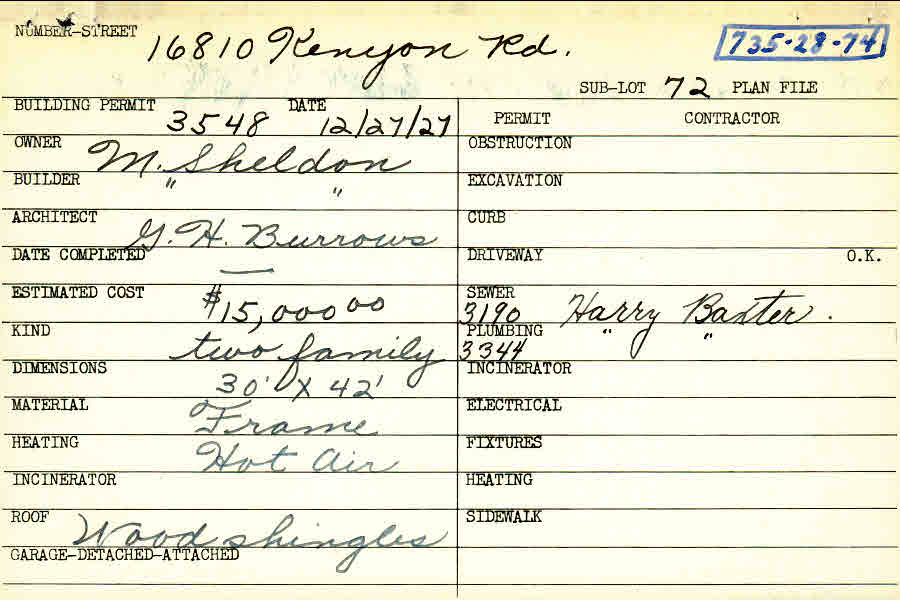 NUMBER-STREET 16810 Kenyon Rd. 735-28-74
SUB-LOT 72 PLAN FILE
BUILDING PERMIT 3548 DATE 12/27/27
PERMIT CONTRACTOR
OWNER M. Sheldon
OBSTRUCTION
BUILDER " "
EXCAVATION
ARCHITECT G. H. Burrows
CURB
DATE COMPLETED —
DRIVEWAY O.K.
ESTIMATED COST $15,000 00
SEWER 3190 Harry Baxter.
KIND two family
PLUMBING 3344 " "
DIMENSIONS 30' X 42'
INCINERATOR
MATERIAL Frame
ELECTRICAL
HEATING Hot Air
FIXTURES
INCINERATOR
HEATING
ROOF Wood shingles
SIDEWALK
GARAGE-DETACHED-ATTACHED